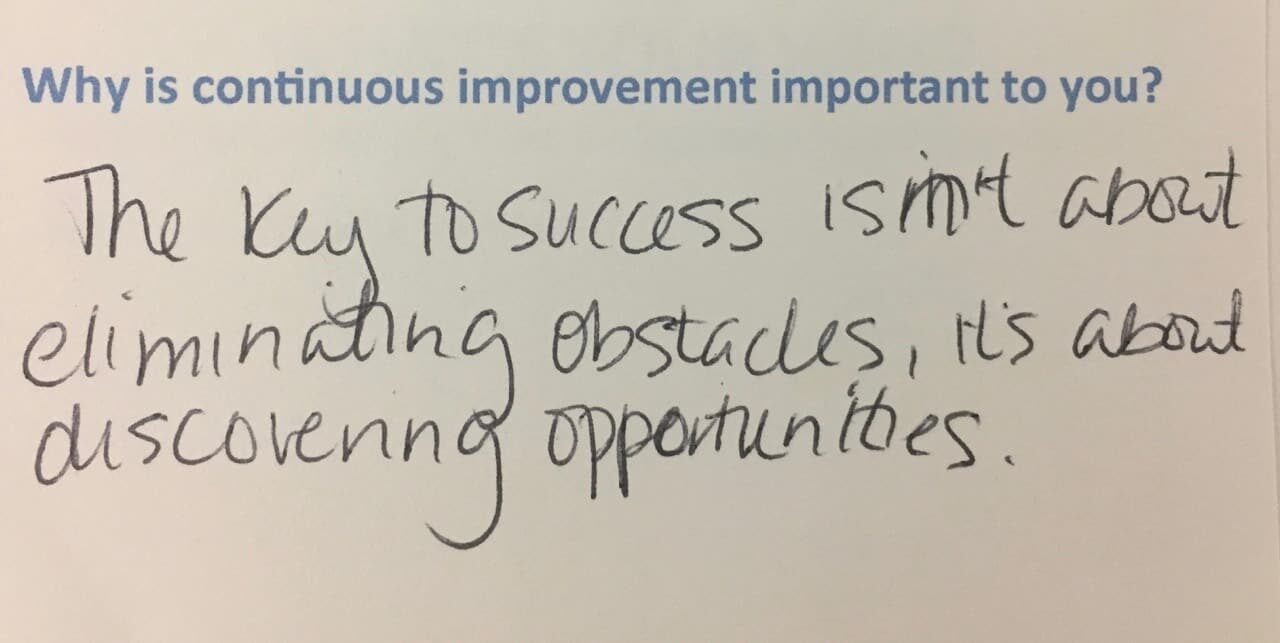 Why is continuous improvement important to you?
The key to success isn't about
eliminating obstacles, it's about
discovering opportunities.